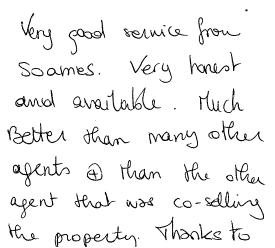 Very good service from
Soames. Very honest
and available. Much
Better than many other
agents ⊕ than the other
agent that was co-selling
the property. Thanks to